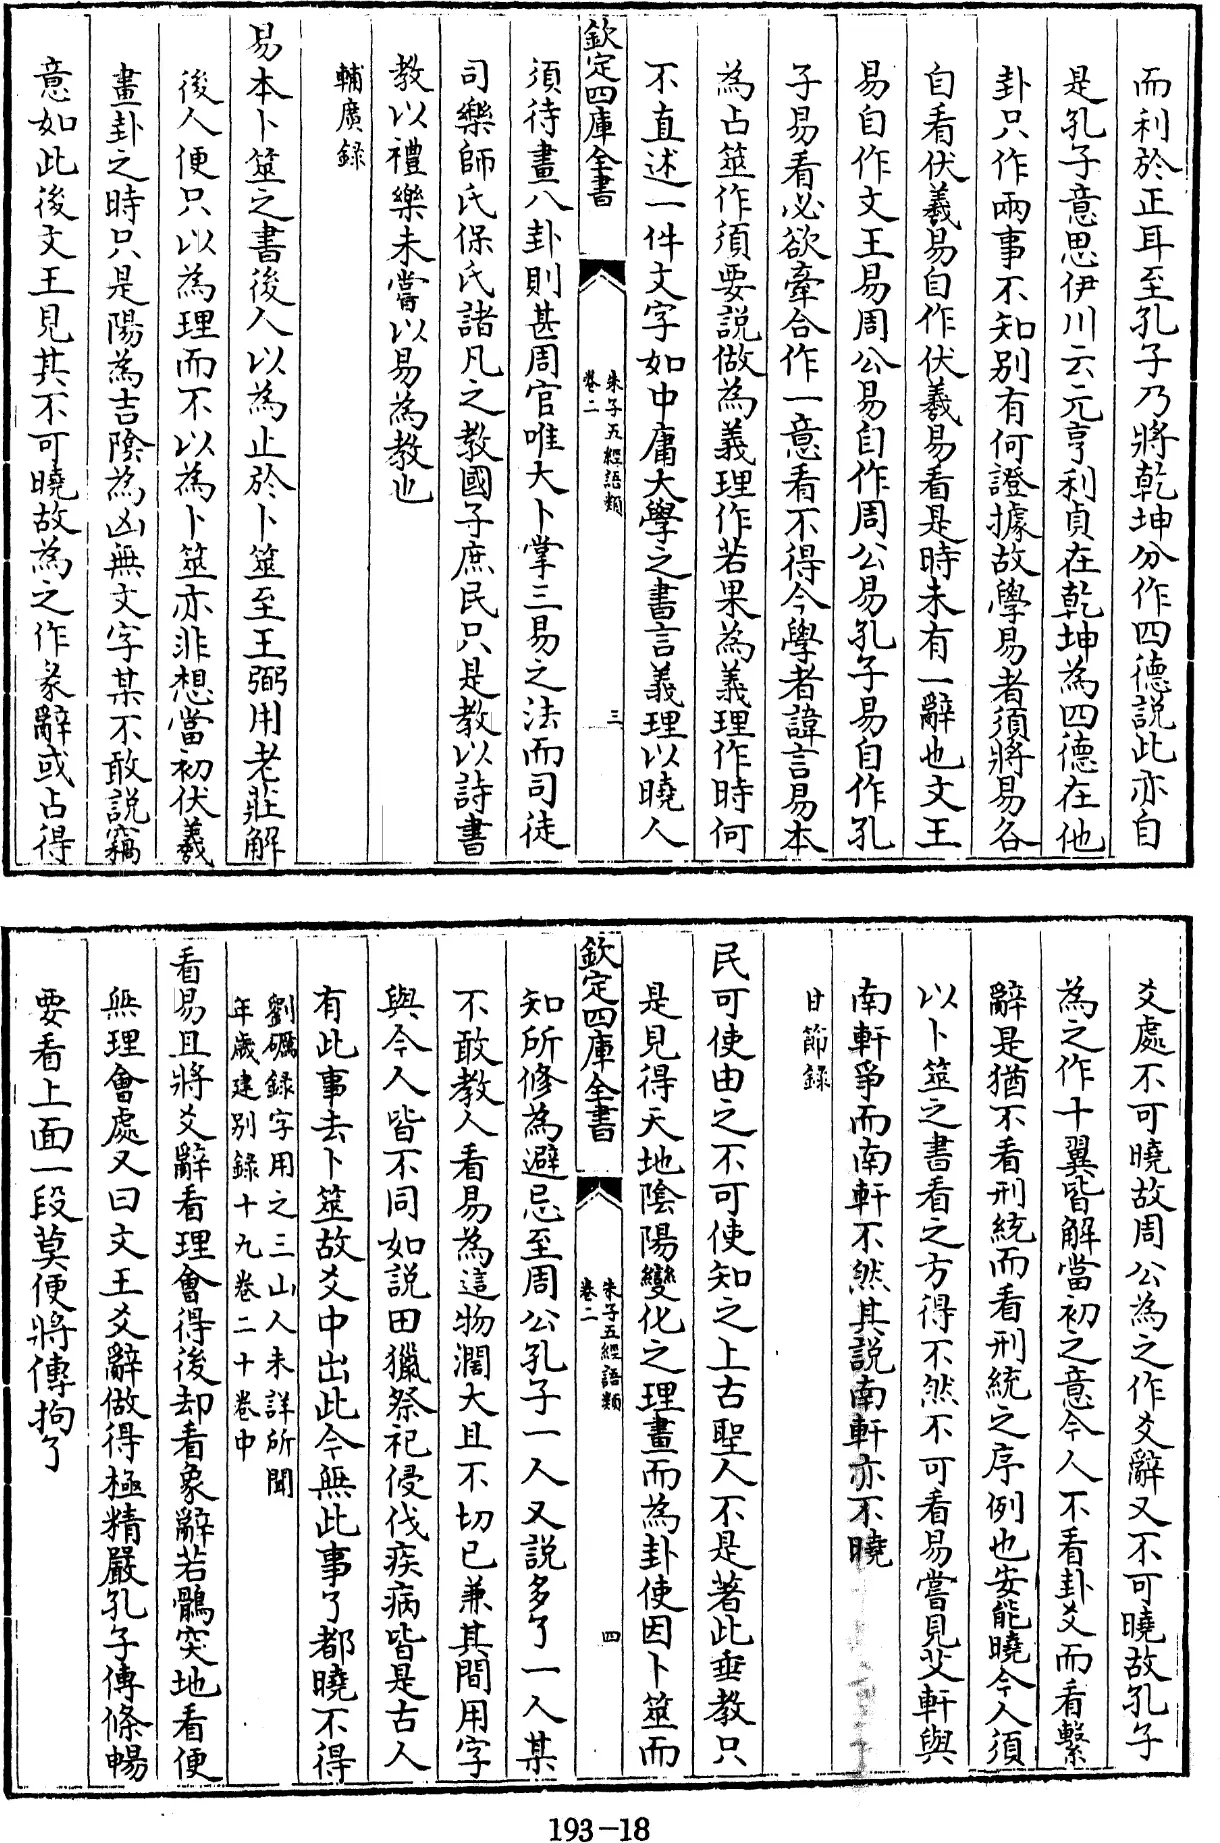 而利於正耳至孔子乃將乾坤分作四德説此亦自
是孔子意思伊川云元亨利貞在乾坤為四德在他
卦只作兩事不知別有何證據故學易者須將易各
自看伏羲易自作伏羲易看是時未有一辭也文王
易自作文王易周公易自作周公易孔子易自作孔
子易看必欲牽合作一意看不得今學者諱言易本
為占筮作須要説做為義理作若果為義理作時何
不直述一件文字如中庸大學之書言義理以曉人
欽定四庫全書
朱子五經語類
卷二
三
須待畫八卦則甚周官唯大卜掌三易之法而司徒
司樂師氏保氏諸凡之教國子庶民只是教以詩書
教以禮樂未嘗以易為教也
輔廣録
易本卜筮之書後人以為止於卜筮至王弼用老莊解
後人便只以為理而不以為卜筮亦非想當初伏羲
畫卦之時只是陽為吉陰為凶無文字某不敢説竊
意如此後文王見其不可曉故為之作彖辭或占得
爻處不可曉故周公為之作爻辭又不可曉故孔子
為之作十翼皆解當初之意今人不看卦爻而看繫
辭是猶不看刑統而看刑統之序例也安能曉今人須
以卜筮之書看之方得不然不可看易嘗見艾軒與
南軒爭而南軒不然其説南軒亦不曉
甘節録
民可使由之不可使知之上古聖人不是著此垂教只
是見得天地陰陽變化之理畫而為卦使因卜筮而
欽定四庫全書
朱子五經語類
卷二
四
知所修為避忌至周公孔子一人又説多了一人某
不敢教人看易為這物濶大且不切已兼其間用字
與今人皆不同如説田獵祭祀侵伐疾病皆是古人
有此事去卜筮故爻中出此今無此事了都曉不得
劉礪録字用之三山人未詳所聞
年歲建別錄十九卷二十卷中
看易且將爻辭看理會得後却看象辭若鶻突地看便
無理會處又曰文王爻辭做得極精嚴孔子傳條暢
要看上面一段莫便將傳拘了
193-18